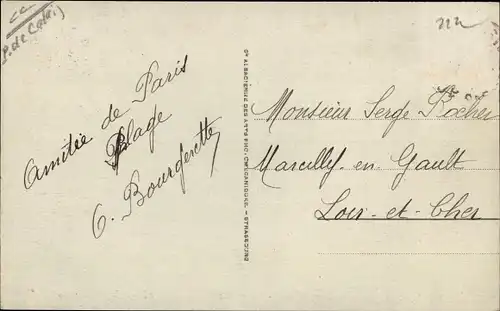 (P. de Cal.)
222
Amitié de Paris
Plage
C. Bourgerette
Cie ALSACIENNE DES ARTS PHOTOMÉCANIQUES - STRASBOURG
Monsieur Serge Rocher
Marcilly-en-Gault
Loir-et-Cher